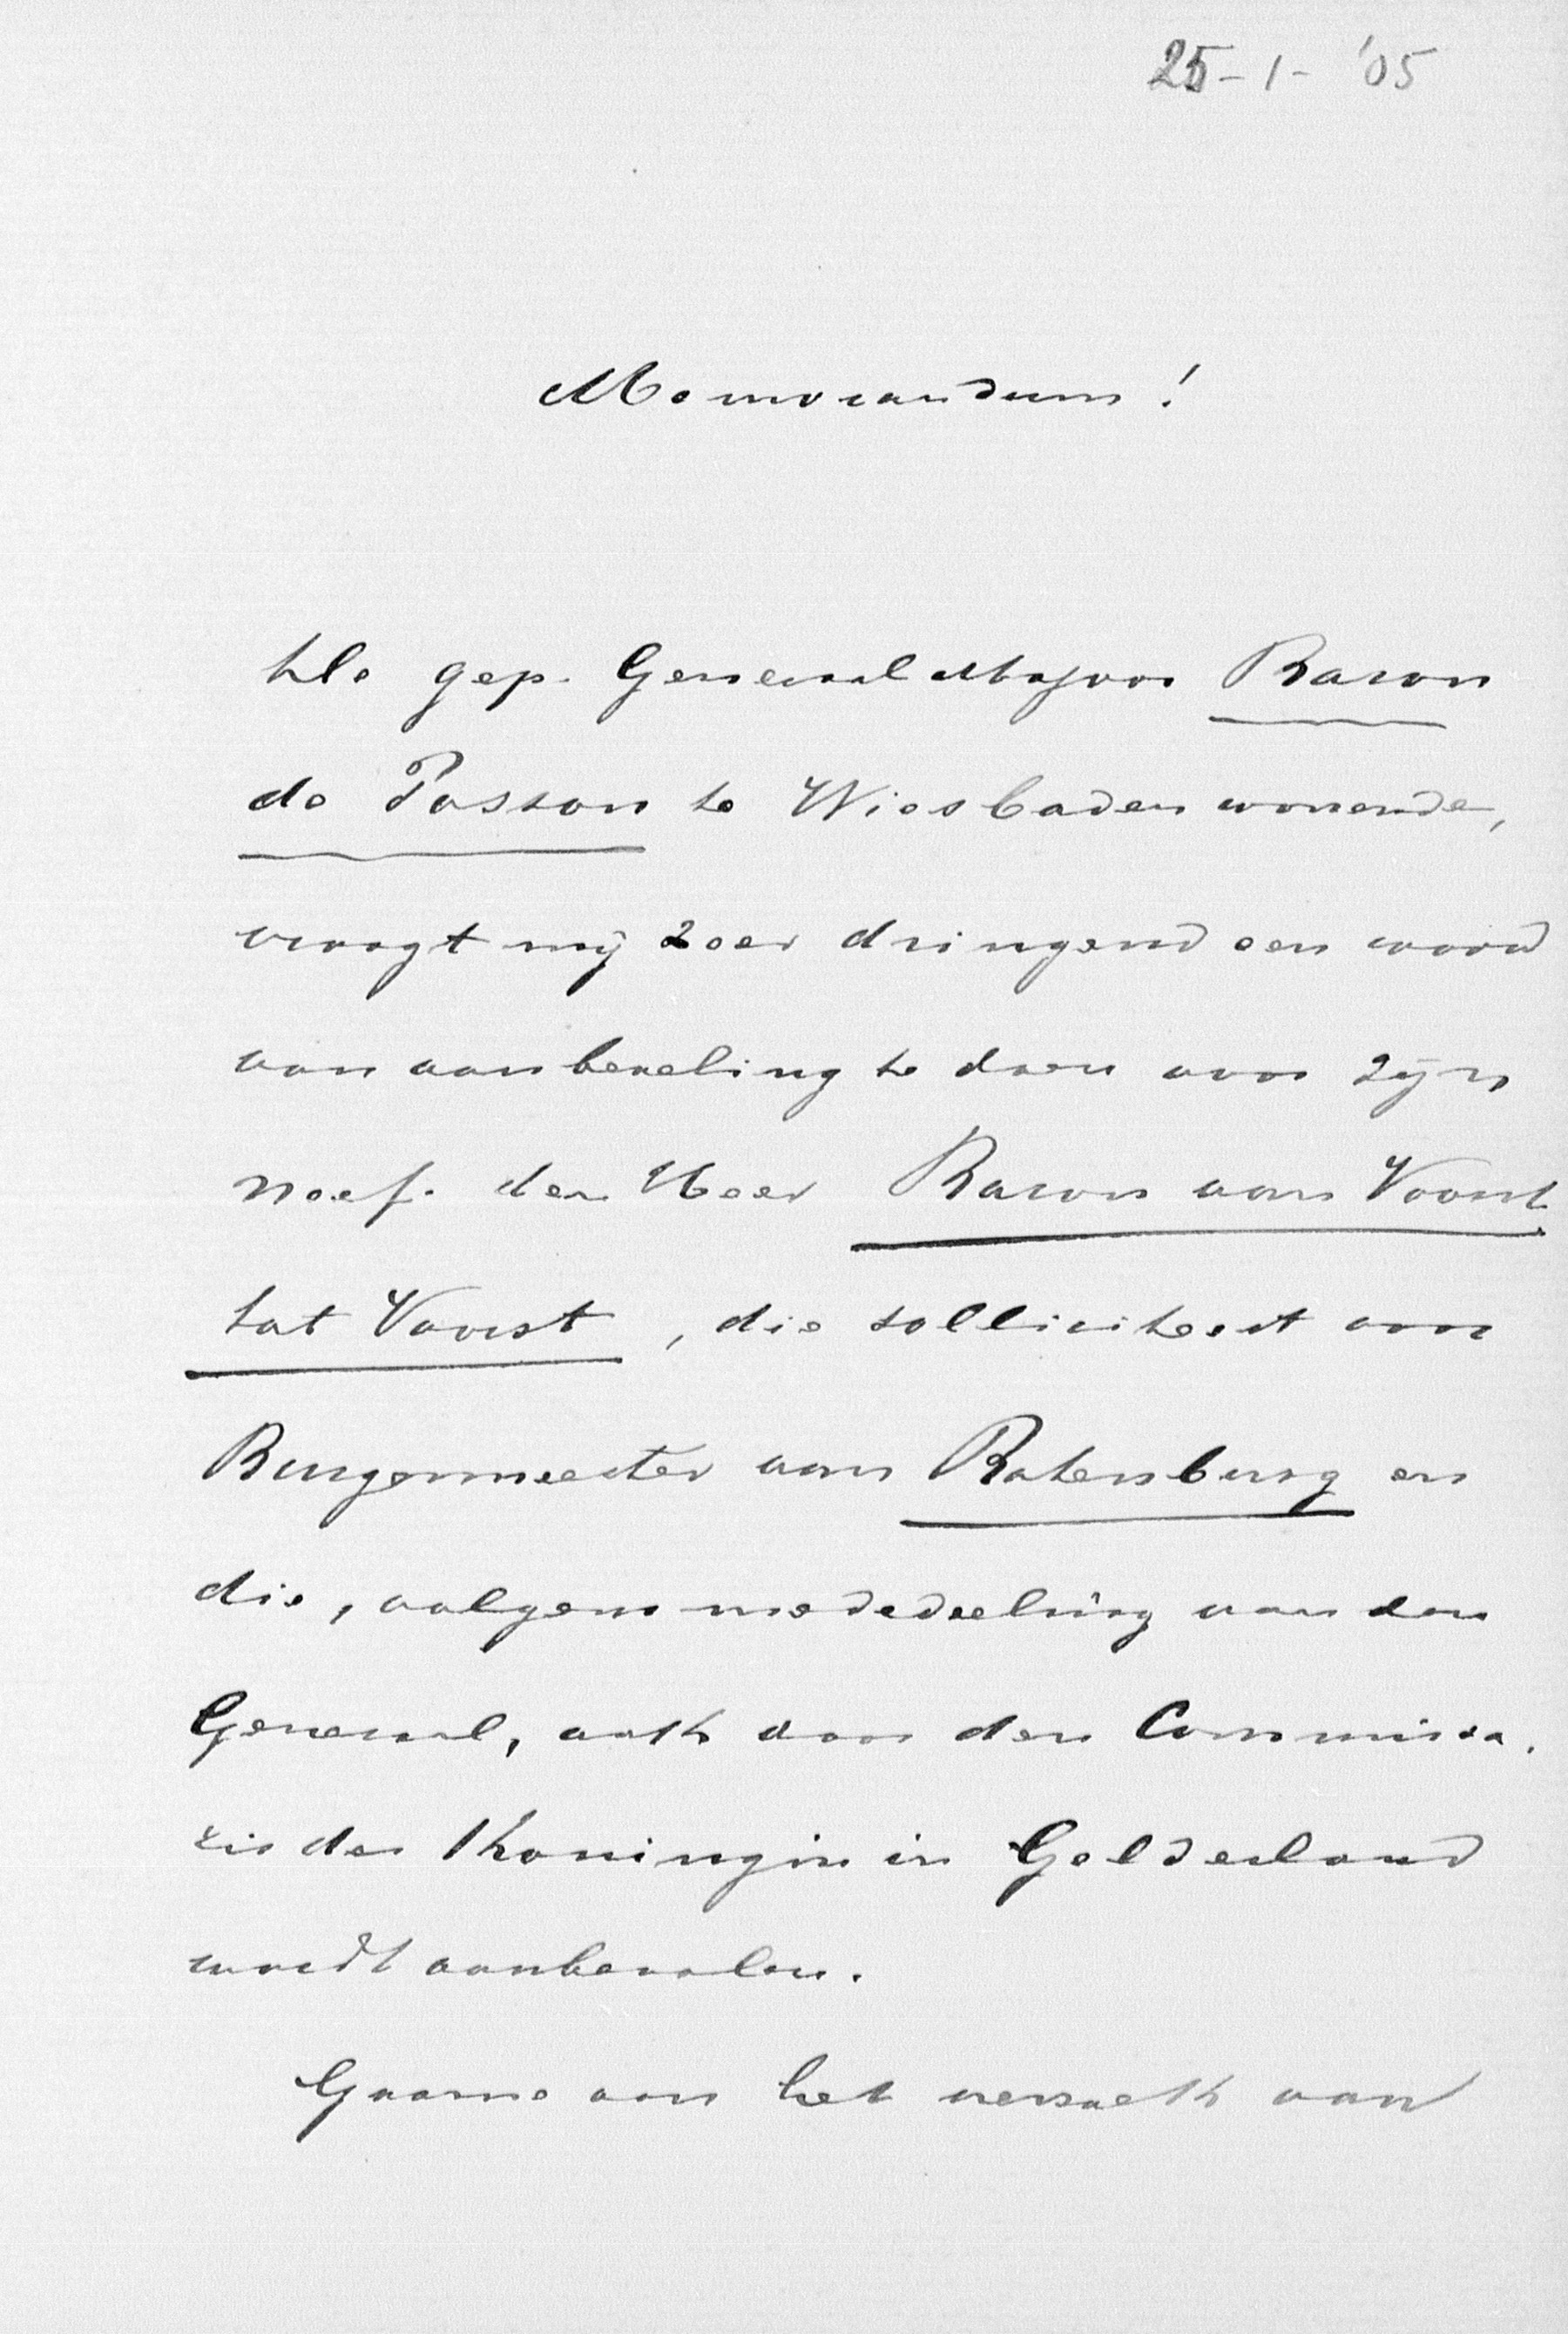 25-1-'05
Memorandum!
De gep. Generaal Majoor Baron
de Posson te Wiesbaden wonende,
vraagt mij zeer dringend een woord
van aanbeveling te doen voor zijn
neef. den Heer Baron van Voorst
tot Voorst, die solliciteert voor
Burgemeester van Batenburg en
die, volgens mededeeling van den
Generaal, ook door den Commissa.
ris der Koningin in Gelderland
wordt aanbevolen.
Gaarne aan het verzoek van